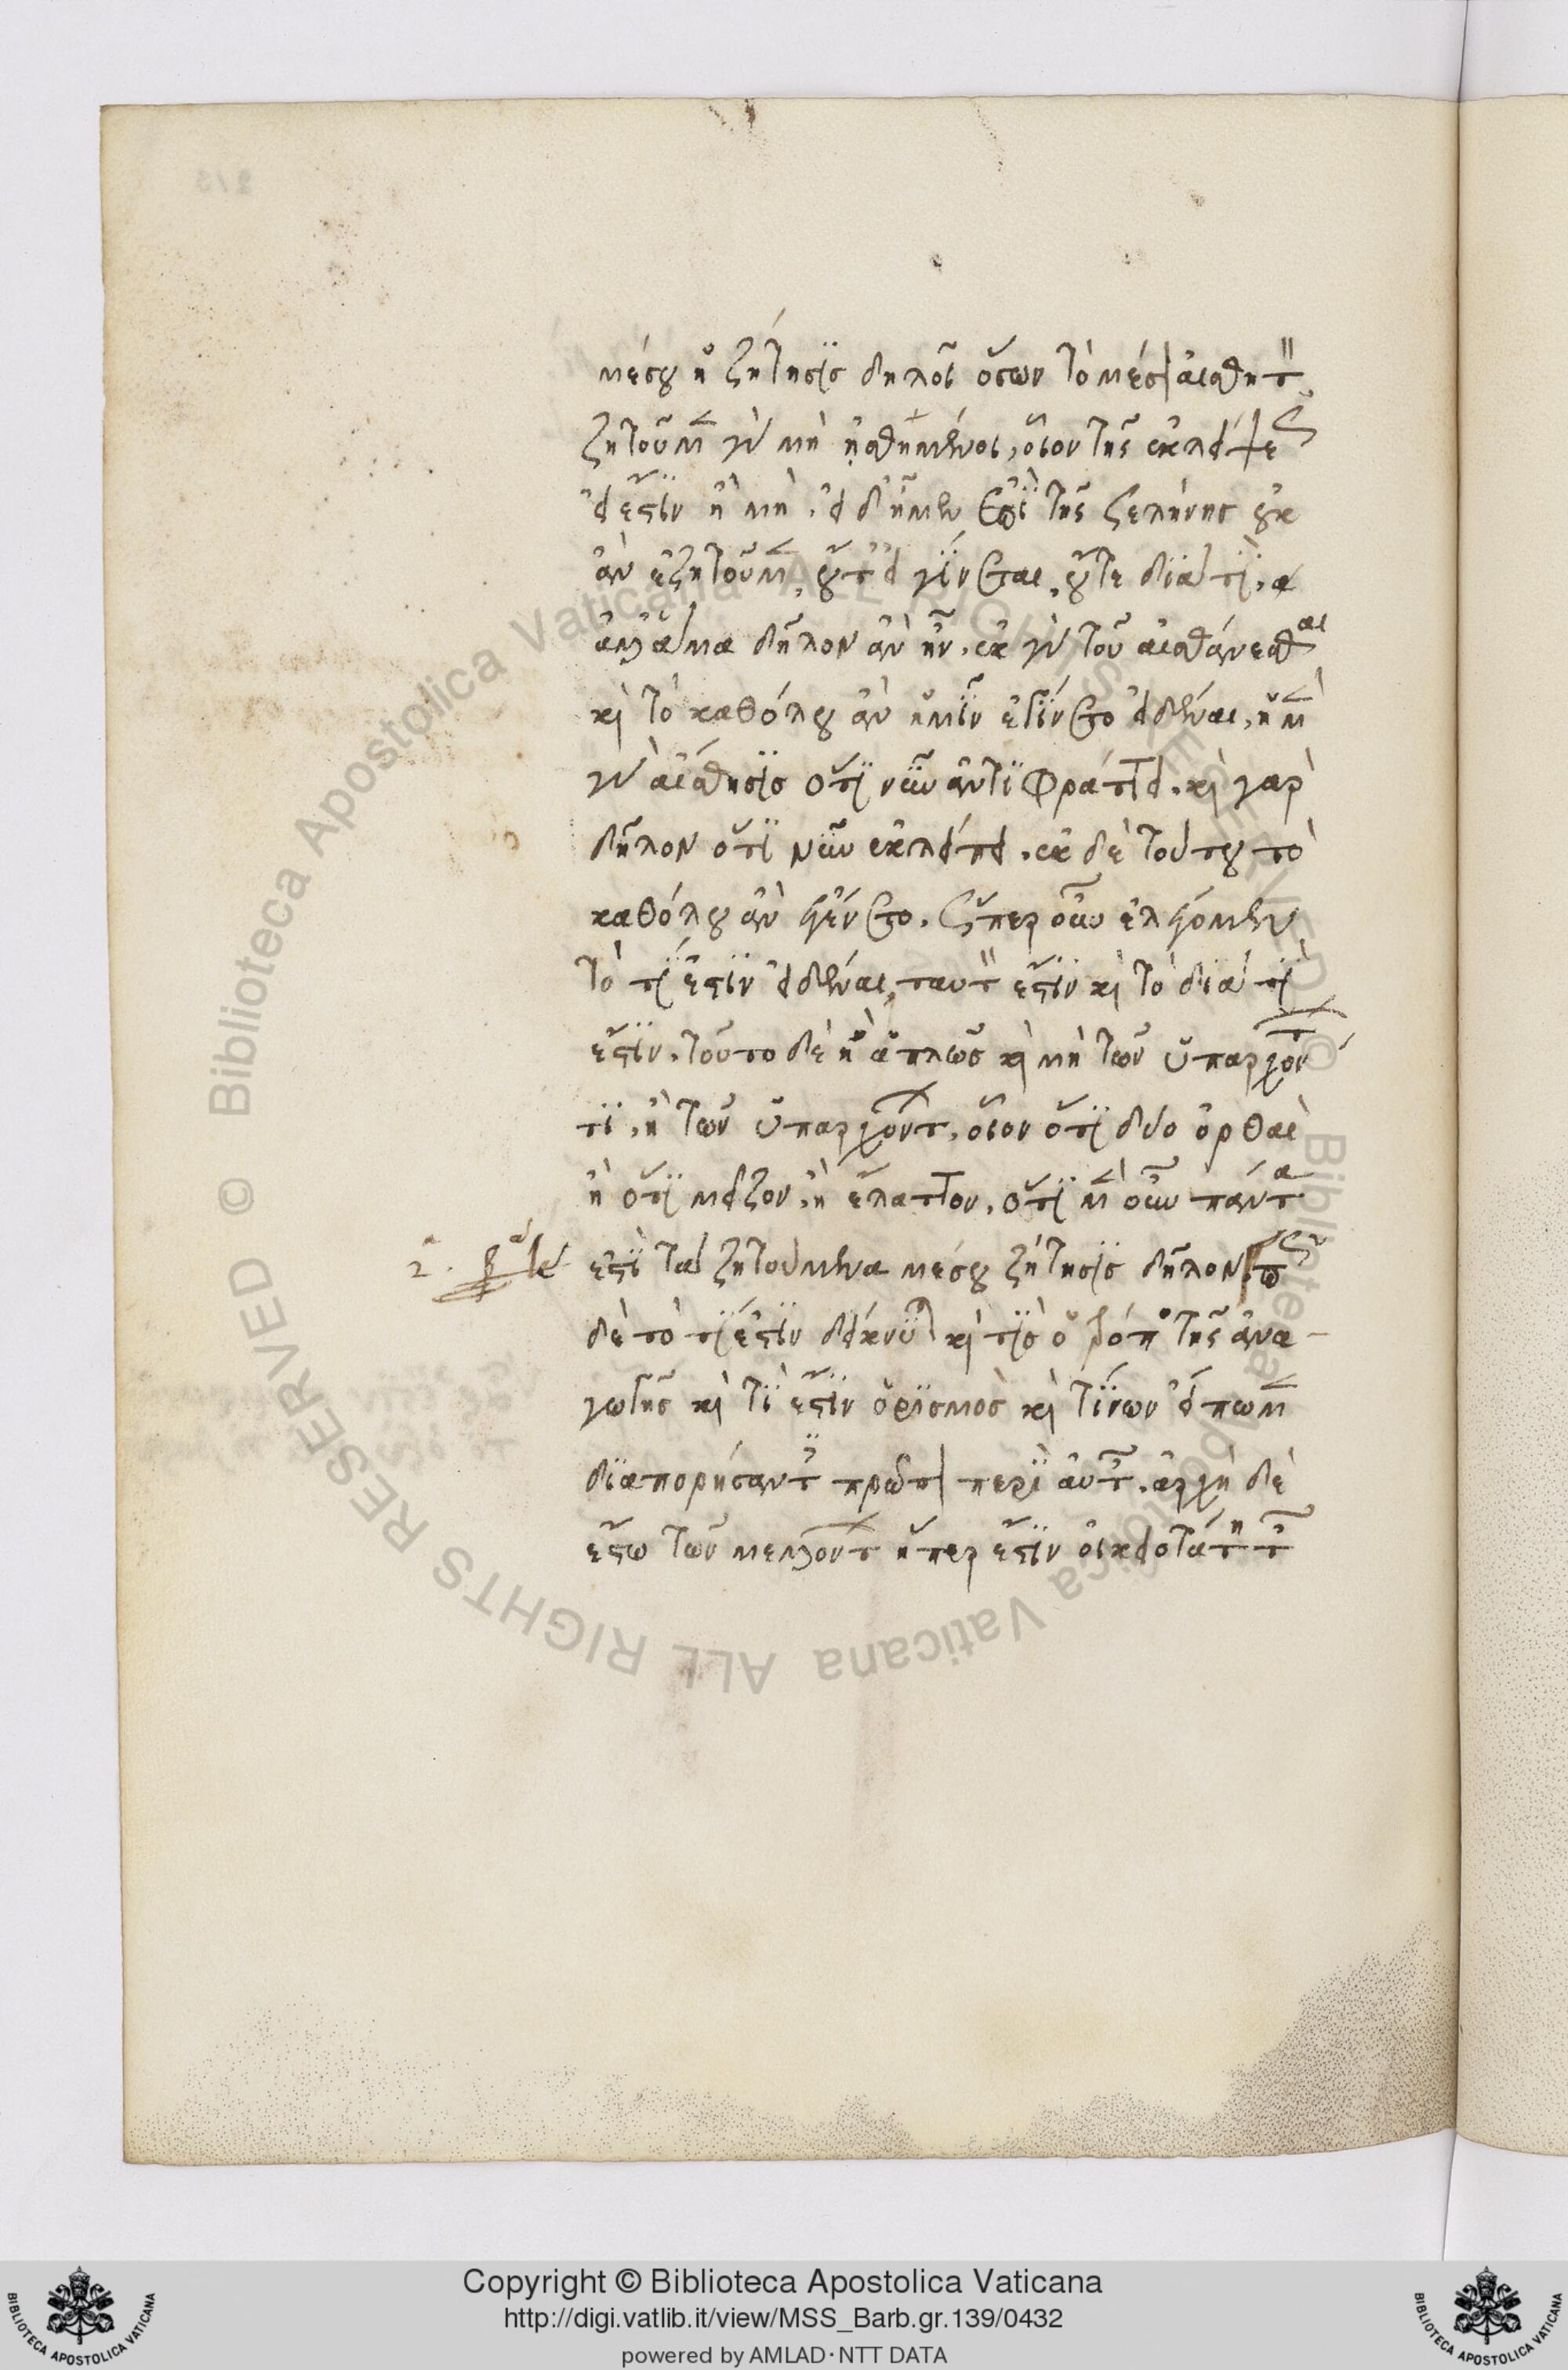 μέσου ἡ ζήτησις δηλοῖ ὅσων τὸ μέσον αἰσθητόν
ζητοῦμεν γὰρ μὴ ᾐσθημένοι, οἷον τῆς ἐκλείψεως
εἰ ἔστιν ἢ μή. εἰ δ' ἦμεν ἐπὶ τῆς σελήνης οὐκ
ἂν ἐζητοῦμεν, οὔτ' εἰ γίνεται, οὔτε διὰ τί. ἀ
ἀλλ' ἅμα δῆλον ἂν ἦν. ἐκ γὰρ τοῦ αἰσθάνεσθαι
καὶ τὸ καθόλου ἂν ἡμῖν ἐγίνετο εἰδέναι, ἡ μὲν
γὰρ αἴσθησις ὅτι νῦν ἀντιφράττει. καὶ γὰρ
δῆλον ὅτι νῦν ἐκλείπει. ἐκ δὲ τούτου τὸ
καθόλου ἂν ἐγένετο. ὥσπερ οὖν ἐλέγομεν
τὸ τί ἐστιν εἰδέναι, ταυτόν ἐστιν καὶ τὸ διὰ τί
ἐστιν. τοῦτο δὲ ἢ ἁπλῶς καὶ μὴ τῶν ὑπαρχόν
τι, ἢ τῶν ὑπαρχόντων. οἷον ὅτι δύο ὀρθαὶ
ἢ ὅτι μεῖζον, ἢ ἔλαττον. ὅτι μὲν οὖν πάντα
ἐστὶ τὰ ζητούμενα μέσου ζήτησις δῆλον. πῶς
δὲ τὸ τί ἐστιν δείκνυται καὶ τίς ὁ τρόπος τῆς ἀνα-
γωγῆς καὶ τί ἐστιν ὁρισμὸς καὶ τίνων εἴπωμεν
διαπορήσαντες πρῶτον περὶ αὐτῶν. ἀρχὴ δὲ
ἔστω τῶν μελλόντων ἥπερ ἐστὶν οἰκειοτάτη τῶν
Copyright © Biblioteca Apostolica Vaticana
http://digi.vatlib.it/view/MSS_Barb.gr.139/0432
powered by AMLAD·NTT DATA